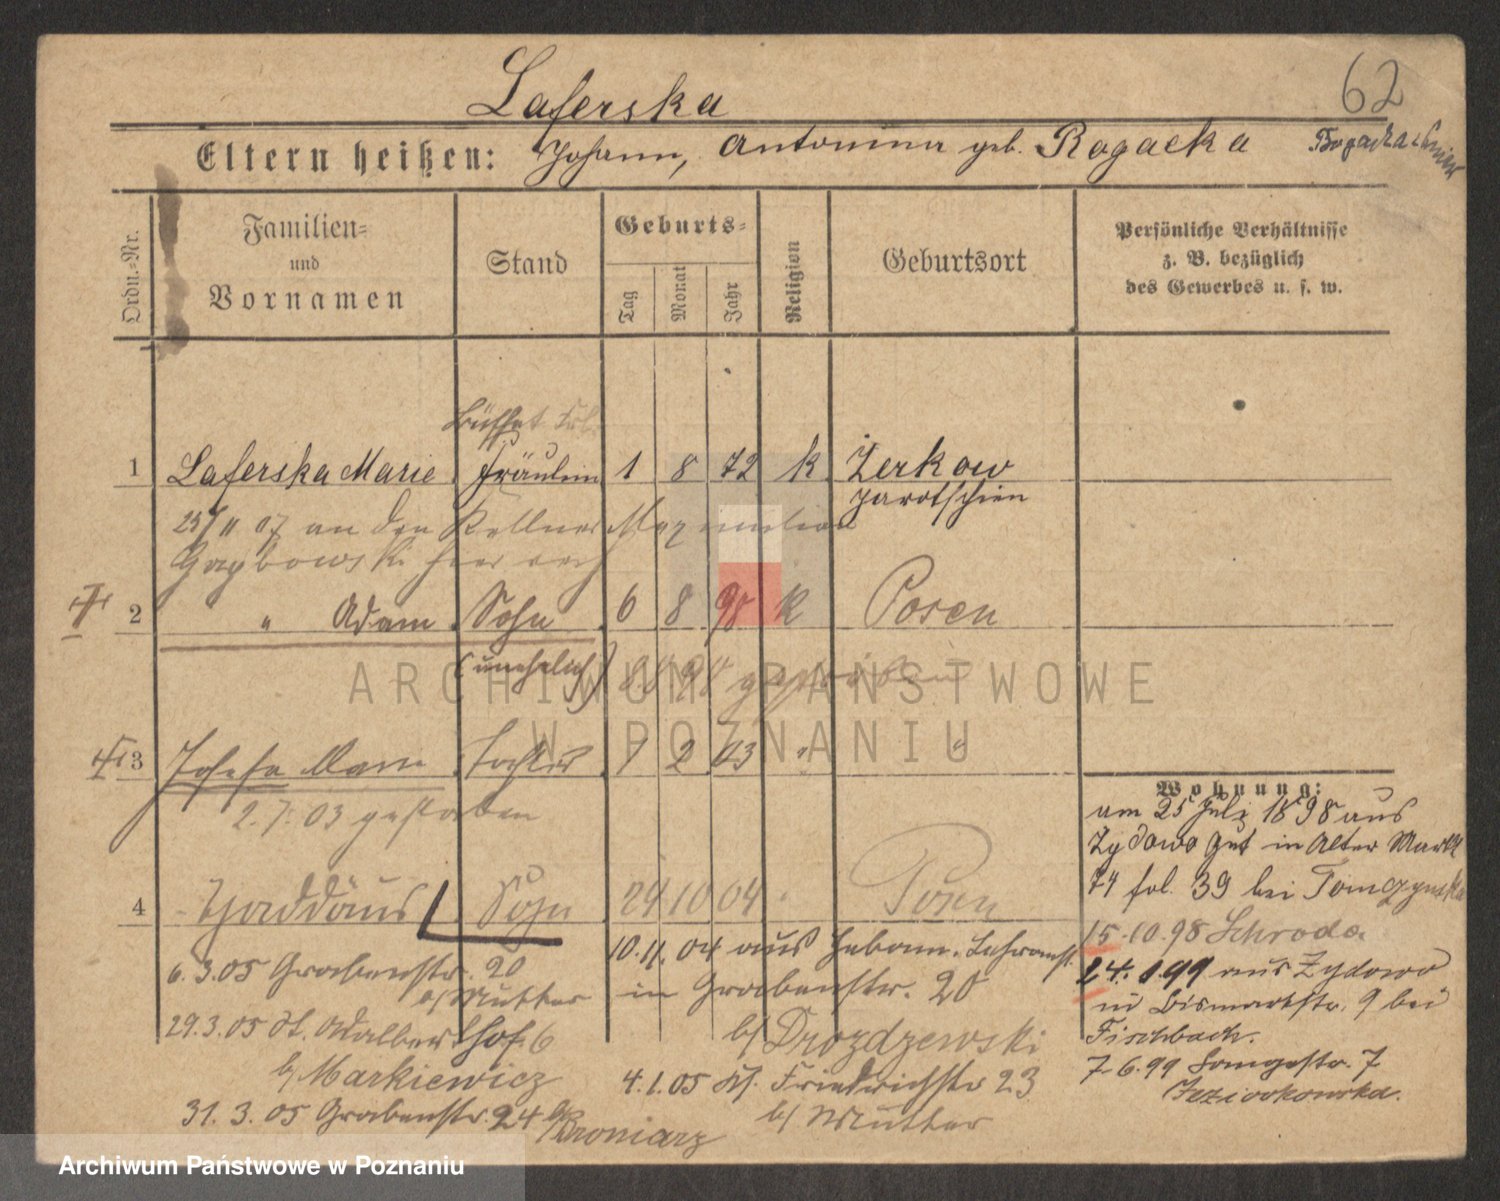 62
Laferska
Eltern heißen: Johann, Antonina geb. Rogacka
Ordn.-Nr.
Familien-
und
Vornamen
Stand
Geburts-
Tag
Monat
Jahr
Religion
Geburtsort
Persönliche Verhältnisse
z. B. bezüglich
des Gewerbes u. s. w.
Büffet
1 Laferska Marie Fräulein 1 8 72 k Zerkow
Jarotschin
25/11 07 an den Kellner
hier
2 " Adam Sohn 6 8 98 k Posen
(unehelich) 8.8 98 gestorben
3 Josefa Marie Tochter 7 2 03 " "
2.7.03 gestorben
4 Thaddäus Sohn 24 10 04 " Posen
6.3.05 Grabenstr. 20
b/ Mutter
29.3.05 St. Adalbert hof 6
b/ Markiewicz
31.3.05 Grabenstr. 24 b/
Broniarz
10.11.04 aus Hebam. Lehranst.
in Grabenstr. 20
b/ Drozdzewski
4.1.05 Kl. Friedrichstr 23
b/ Mutter
Wohnung:
am 25 Juli 1898 aus
Zydowo Gut in Alter Markt
74 fol. 39 bei
15.10.98 Schroda
24.1.99 aus Zydowo
in Bismarkstr. 9 bei
Fischbach.
7.6.99 Langestr. 7
Jeziorkowska.
ARCHIWUM PAŃSTWOWE
W POZNANIU
Archiwum Państwowe w Poznaniu